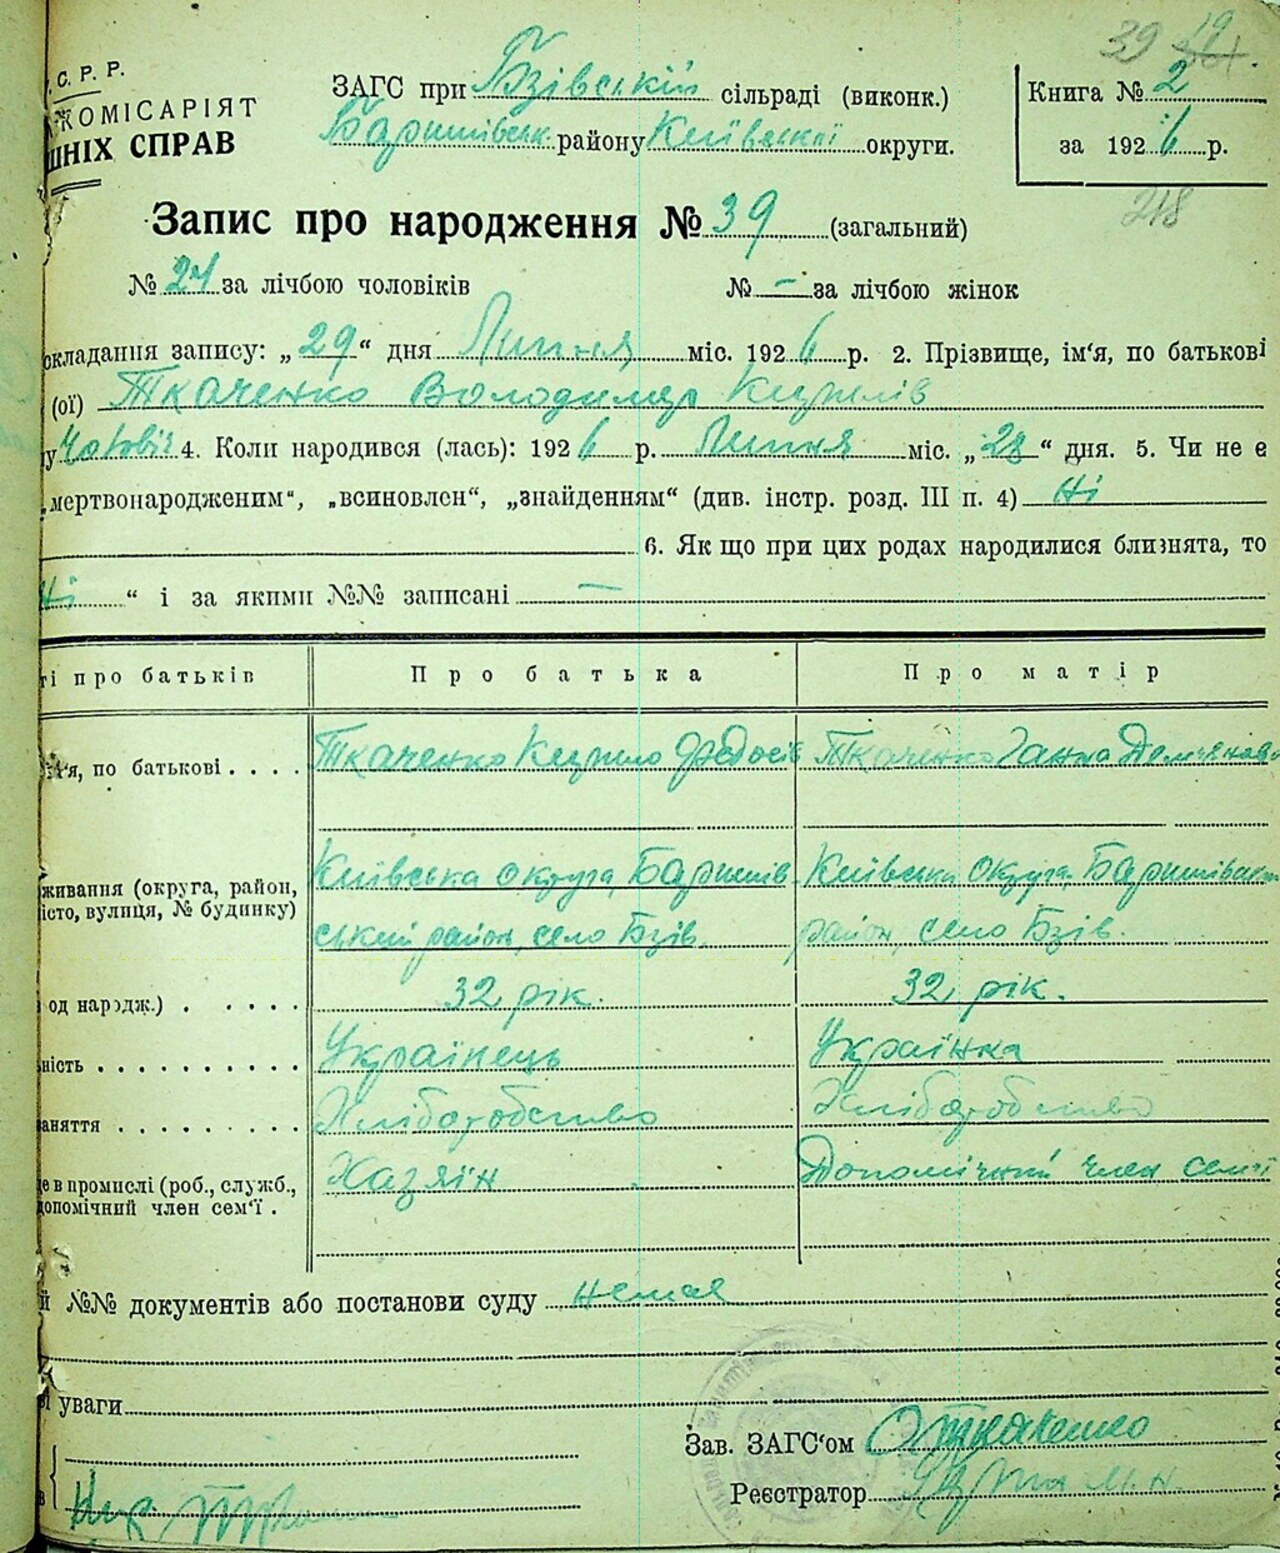 39 19
. С. Р. Р.
КОМІСАРІЯТ
ШНІХ СПРАВ
ЗАГС при Бзівській сільраді (виконк.)
Баришівськ. району Київської округи.
Книга № 2
за 1926 р.
218
Запис про народження № 39 (загальний)
№ 24 за лічбою чоловіків № — за лічбою жінок
складання запису: „29“ дня Липня міс. 1926 р. 2. Прізвище, ім‘я, по батькові
(ої) Ткаченко Володимир Кирилів
у Чоловіч 4. Коли народився (лась): 1926 р. Липня міс. „28“ дня. 5. Чи не є
„мертвонародженим“, „всиновлен“, „знайденням“ (див. інстр. розд. III п. 4) Ні
6. Як що при цих родах народилися близнята, то
Ні “ і за якими №№ записані —
ті про батьків Про батька Про матір
м‘я, по батькові . . . . Ткаченко Кирило Федосів Ткаченко Ганна Демьянов
живання (округа, район, Київська округа, Баришів Київська округа, Баришівськ
істо, вулиця, № будинку) ський район, село Бзів. район, село Бзів.
од нар‌одж.) . . . . . 32 рік. 32 рік.
ність . . . . . . . . . . Українець Українка
аняття . . . . . . . . . Хліборобство Хліборобство
е в промислі (роб., служб., Хазяїн Допомічний член семї
допомічний член сем‘ї .
й №№ документів або постанови суду немає
і уваги
Зав. ЗАГС‘ом О Ткаченко
Реєстратор